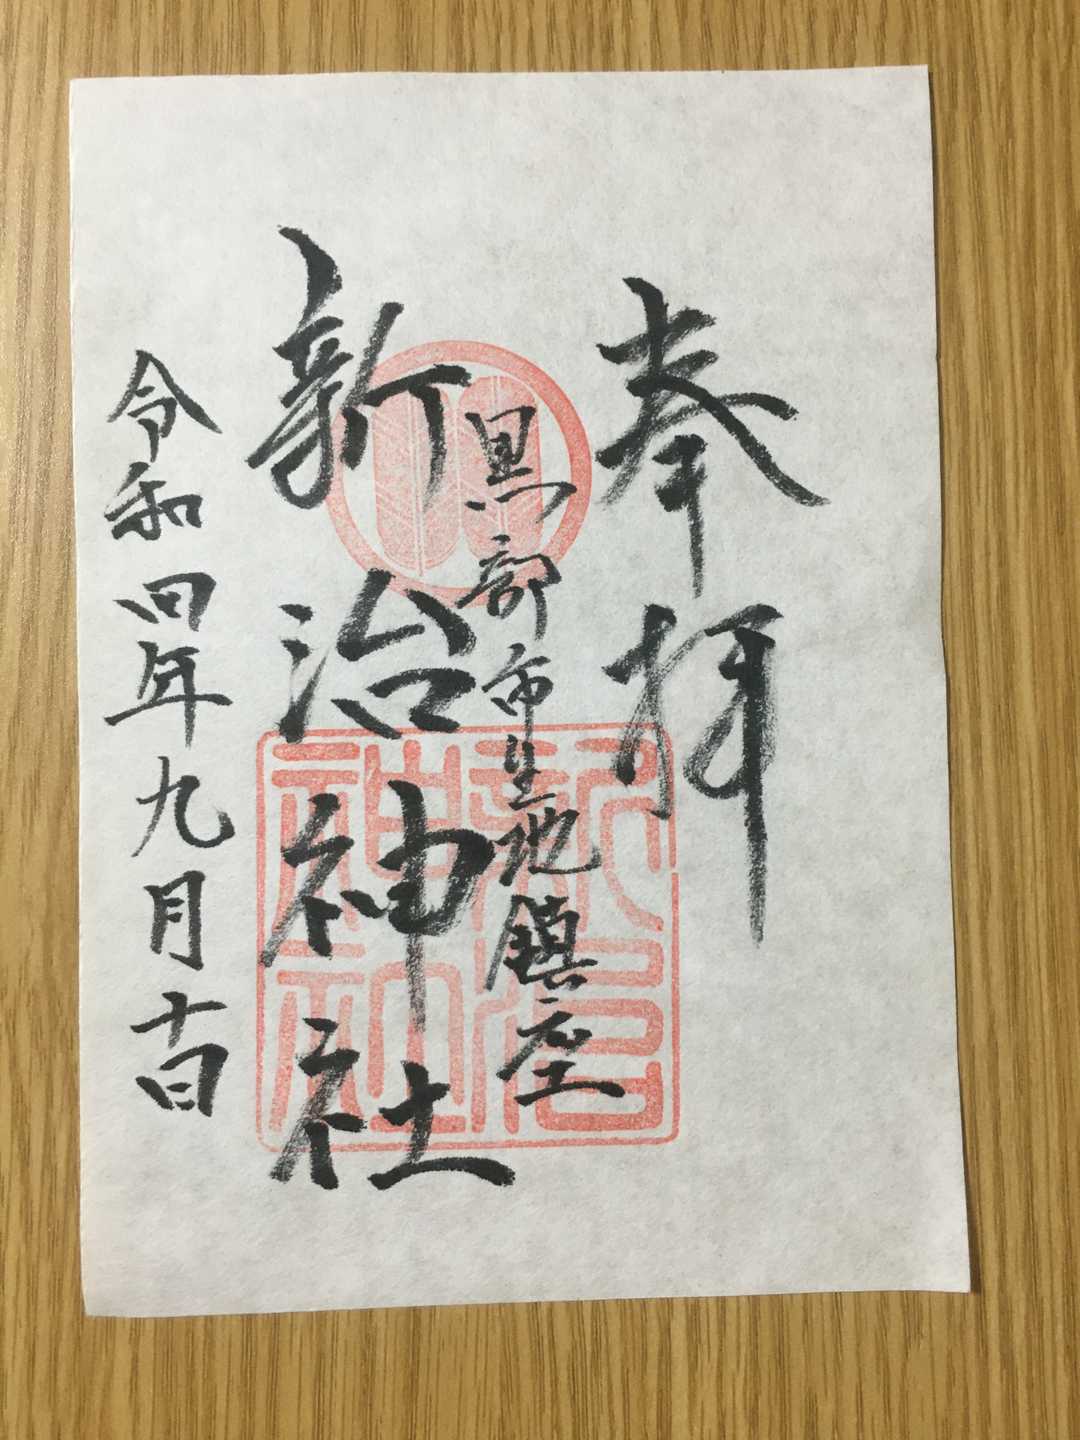 奉拝
黒部市生地鎮座
新治神社
新治神社
令和四年九月十日